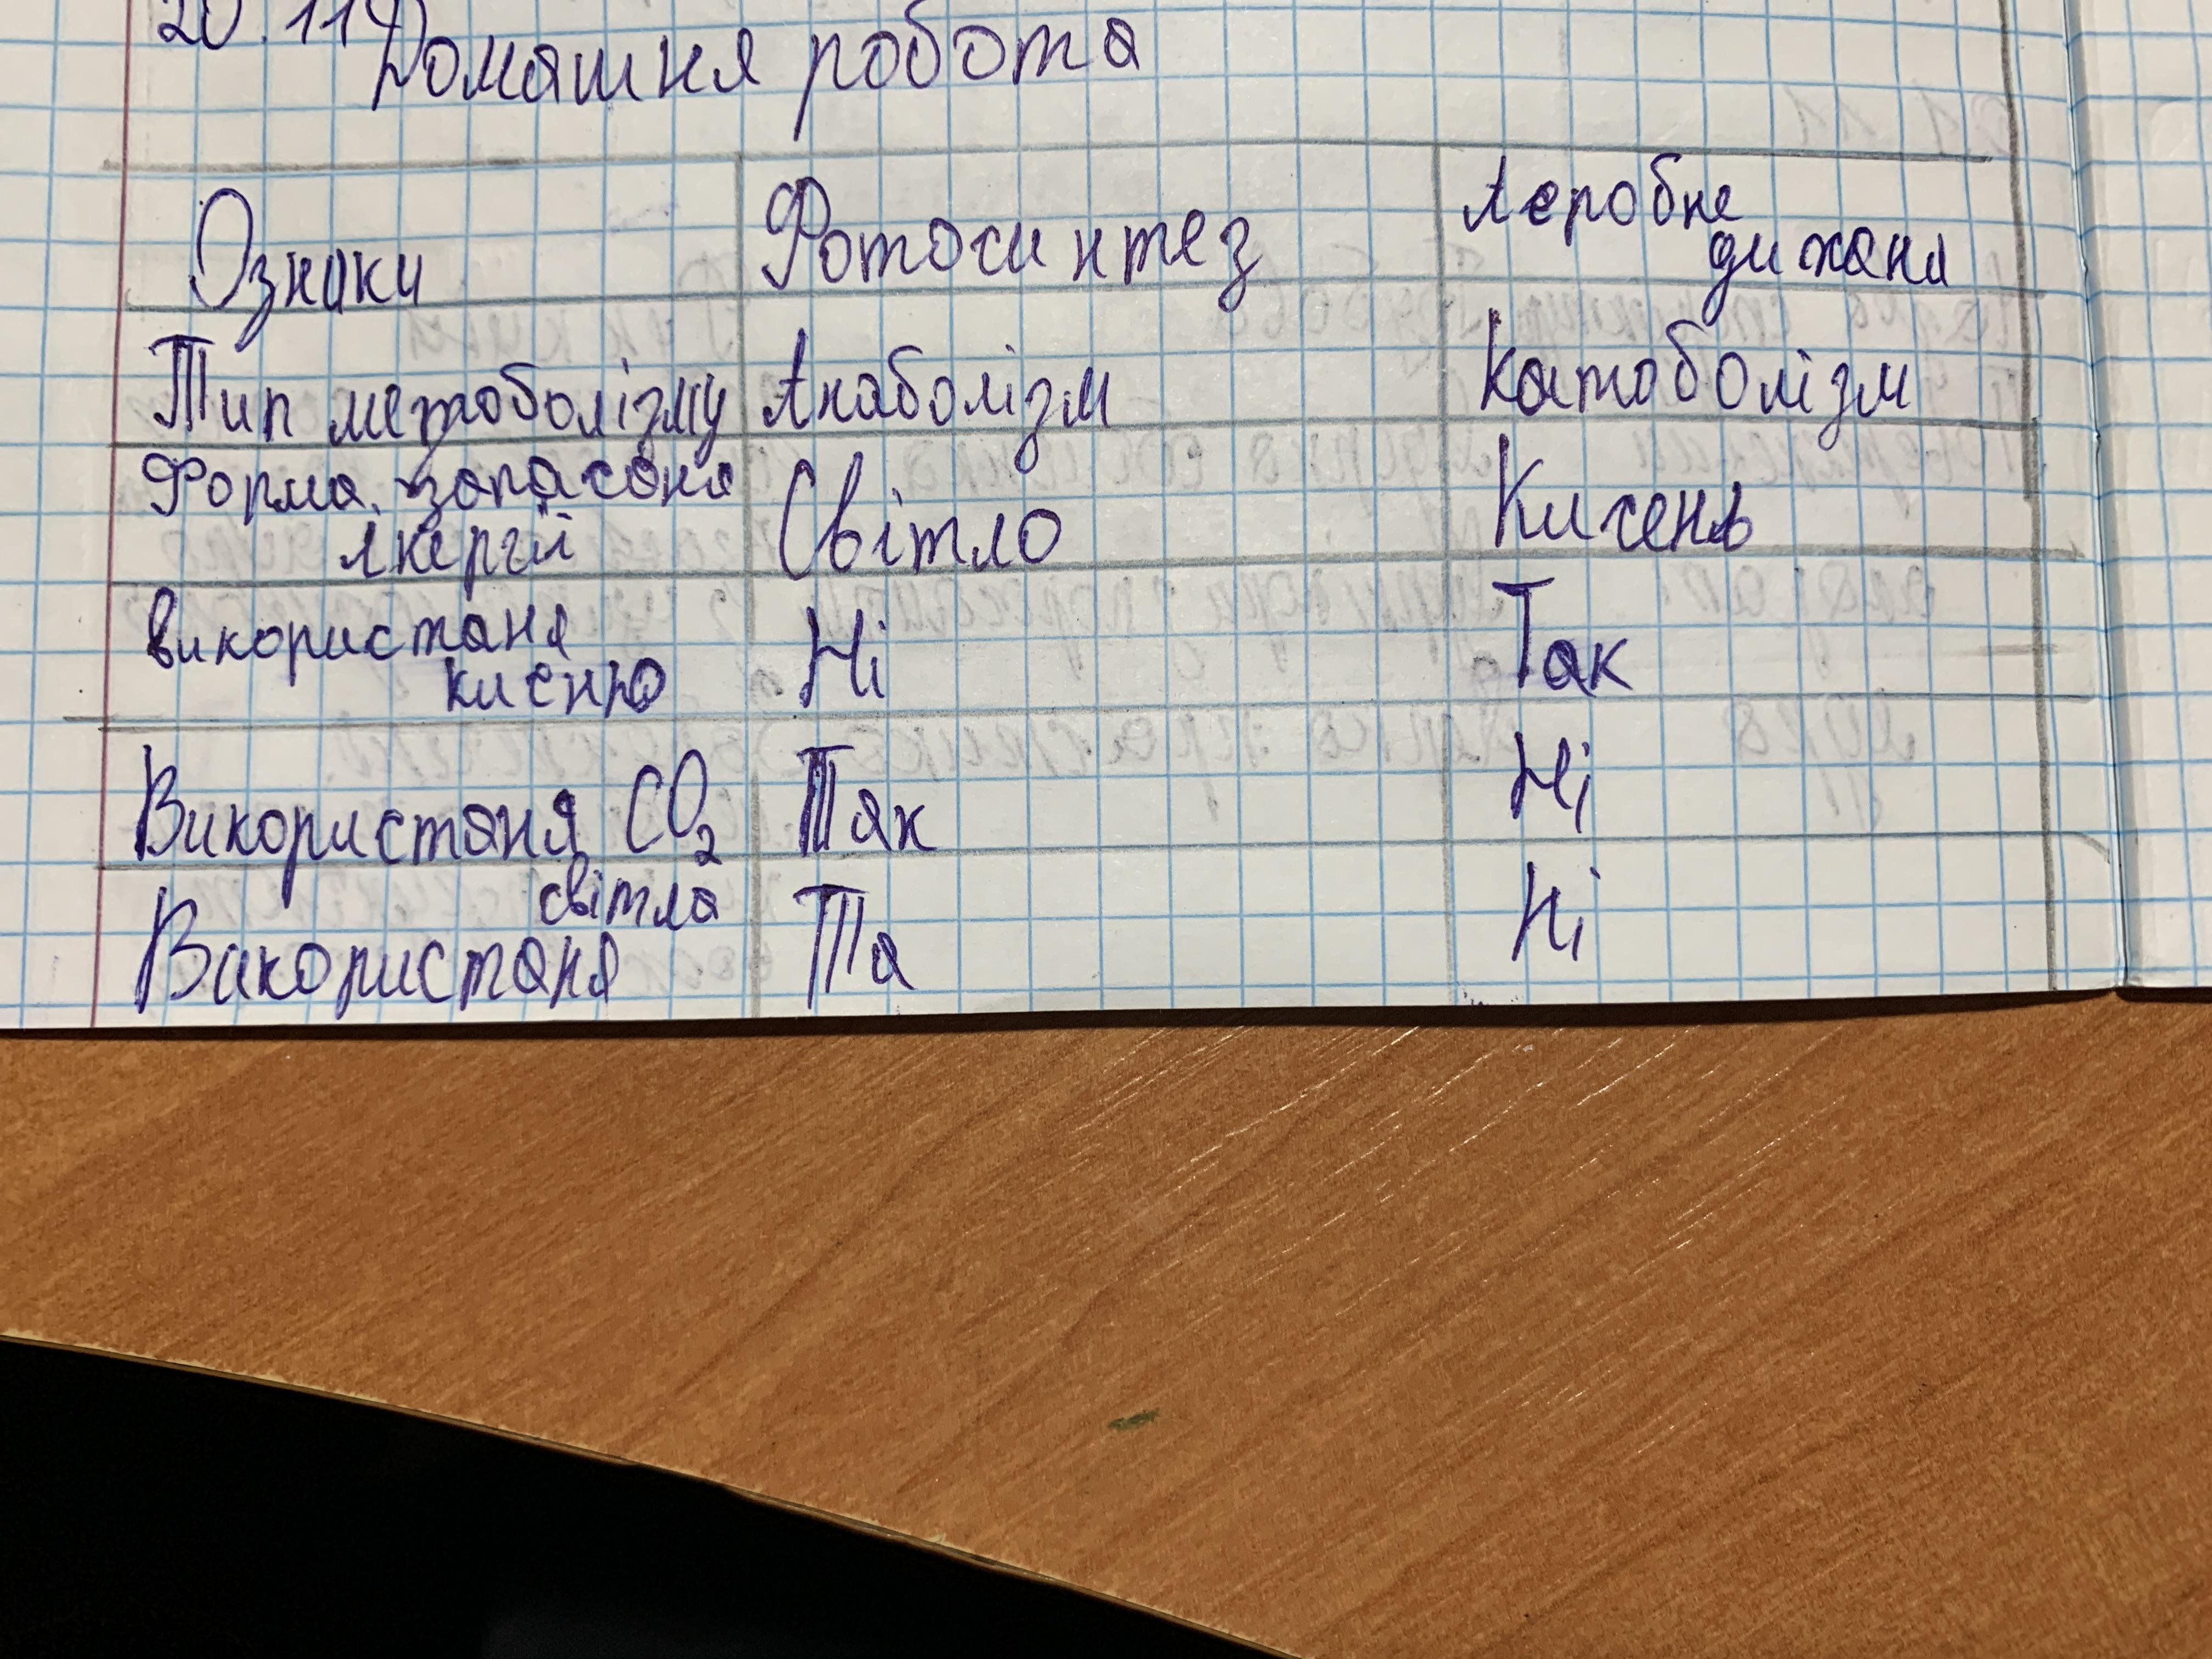 20.11
Домашня робота
Ознаки Фотосинтез Аєробне
дихания
Тип метоболізму Анаболізм Катоболізм
Форма запасоня
енергії Світло Кисень
використаня
кисню Ні Так
Використаня CO₂ Так Ні
світла
Використаня Та Ні